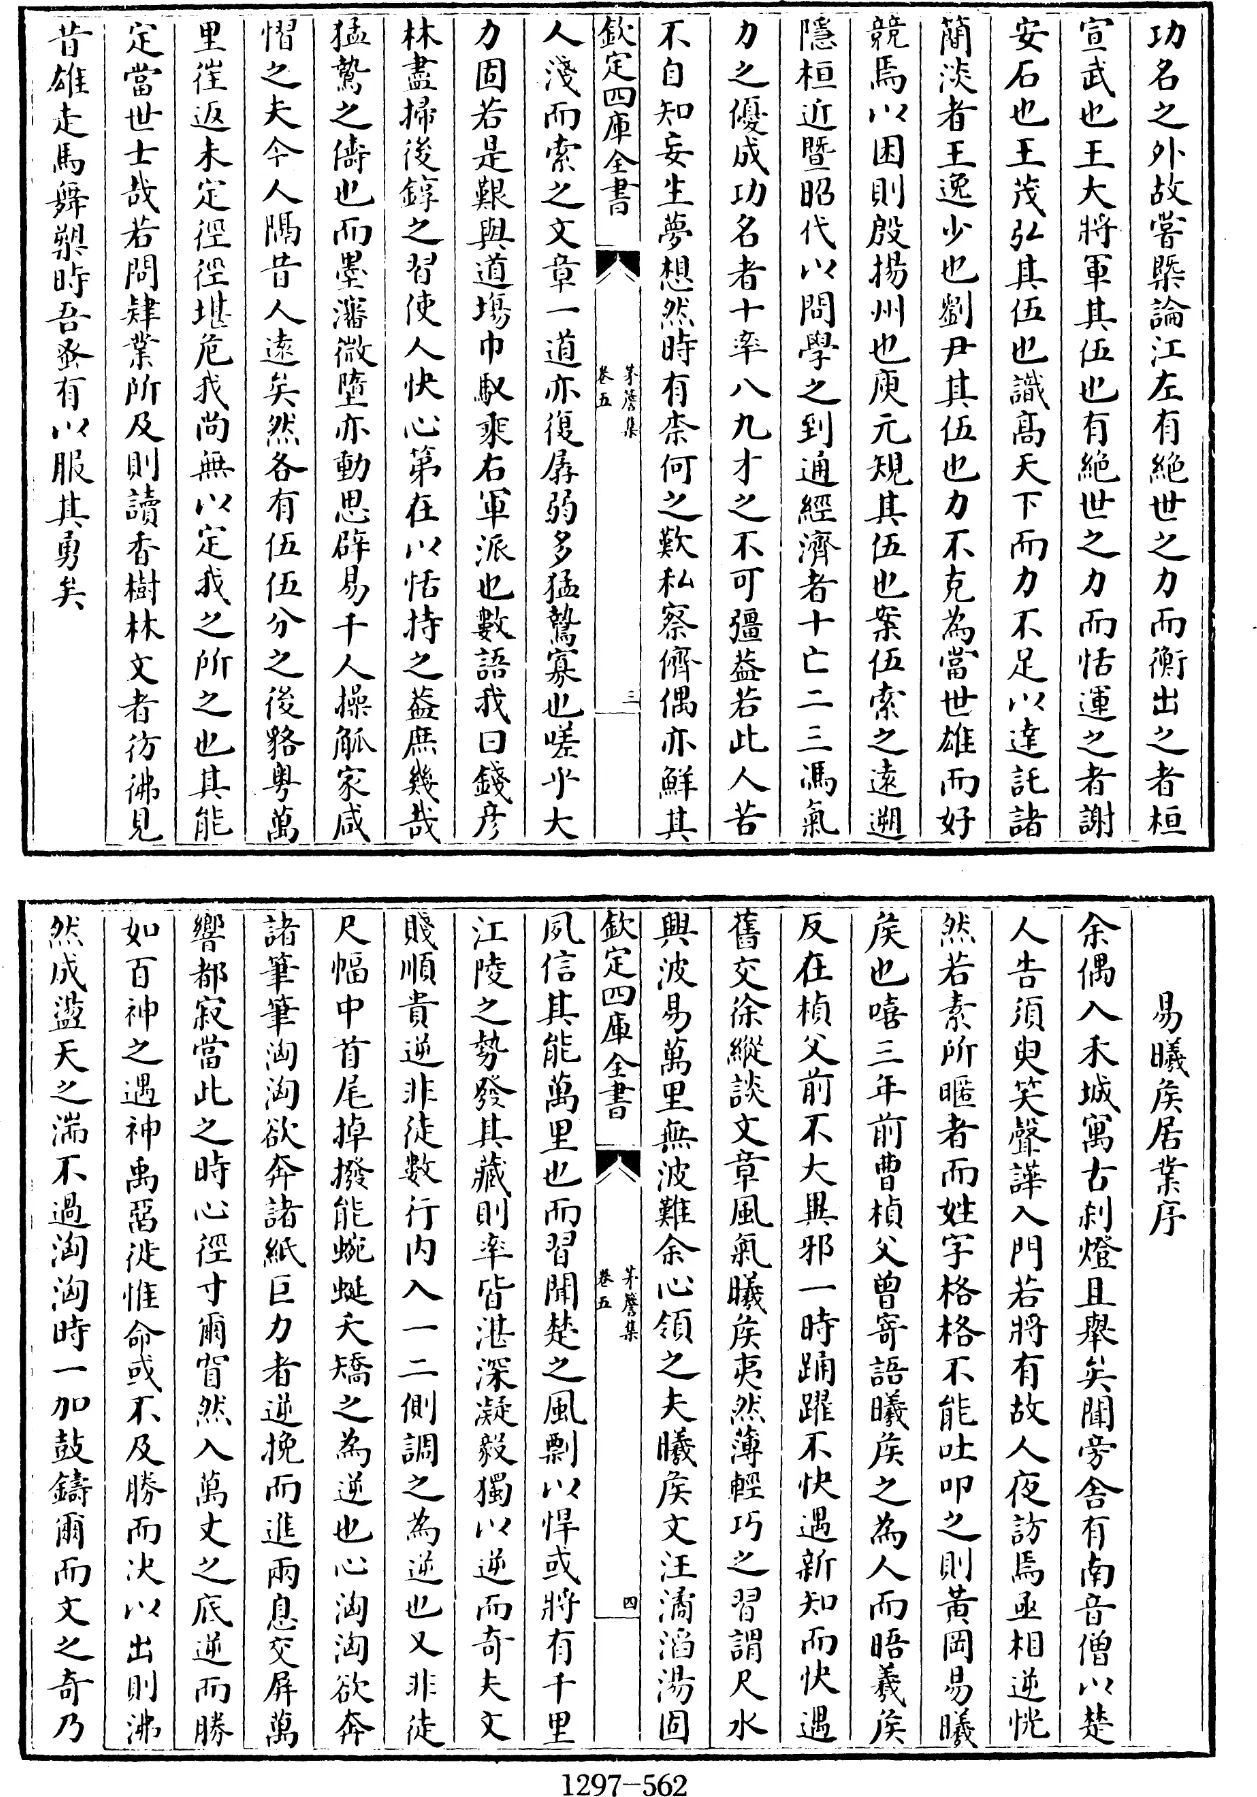 功名之外故嘗槩論江左有絶世之力而衡出之者桓
宣武也王大將軍其伍也有絶世之力而恬運之者謝
安石也王茂弘其伍也識高天下而力不足以達託諸
簡淡者王逸少也劉尹其伍也力不克為當世雄而好
競焉以困則殷揚州也庾元規其伍也案伍索之遠遡
隱桓近曁昭代以問學之到通經濟者十亡二三馮氣
力之優成功名者十率八九才之不可彊葢若此人苦
不自知妄生夢想然時有柰何之歎私察儕偶亦鮮其
欽定四庫全書
茅簷集
卷五
三
人淺而索之文章一道亦復孱弱多猛鷙寡也嗟乎大
力固若是艱與道場巾馭乘右軍派也數語我曰錢彦
林盡掃後錞之習使人快心第在以恬持之葢庶幾哉
猛鷙之儔也而墨瀋微墮亦動思辟易千人操觚家咸
慴之夫今人隅昔人遠矣然各有伍伍分之後豁粤萬
里徃返未定徑徑堪危我尚無以定我之所之也其能
定當世士哉若問肄業所及則讀香樹林文者彷彿見
昔雄走馬舞槊時吾蚤有以服其勇矣
易曦侯居業序
余偶入禾城寓古刹燈且舉矣聞旁舍有南音僧以楚
人告須臾笑聲譁入門若將有故人夜訪焉亟相逆恍
然若素所暱者而姓字格格不能吐叩之則黄岡易曦
侯也嘻三年前曹楨父曾寄語曦侯之為人而晤羲侯
反在楨父前不大異邪一時踊躍不快遇新知而快遇
舊交徐縱談文章風氣曦侯夷然薄輕巧之習謂尺水
興波易萬里無波難余心領之夫曦侯文汪潏滔湯固
欽定四庫全書
茅簷集
卷五
四
夙信其能萬里也而習聞楚之風剽以悍或將有千里
江陵之勢發其藏則率皆湛深凝毅獨以逆而奇夫文
賤順貴逆非徒數行内入一二側調之為逆也又非徒
尺幅中首尾掉撥能蜿蜒夭矯之為逆也心洶洶欲奔
諸筆筆洶洶欲奔諸紙巨力者逆挽而進兩息交屏萬
響都寂當此之時心徑寸爾窅然入萬丈之底逆而勝
如百神之遇神禹罶徙惟命或不及勝而决以出則沸
然成盪天之湍不過洶洶時一加鼓鑄爾而文之奇乃
1297-562